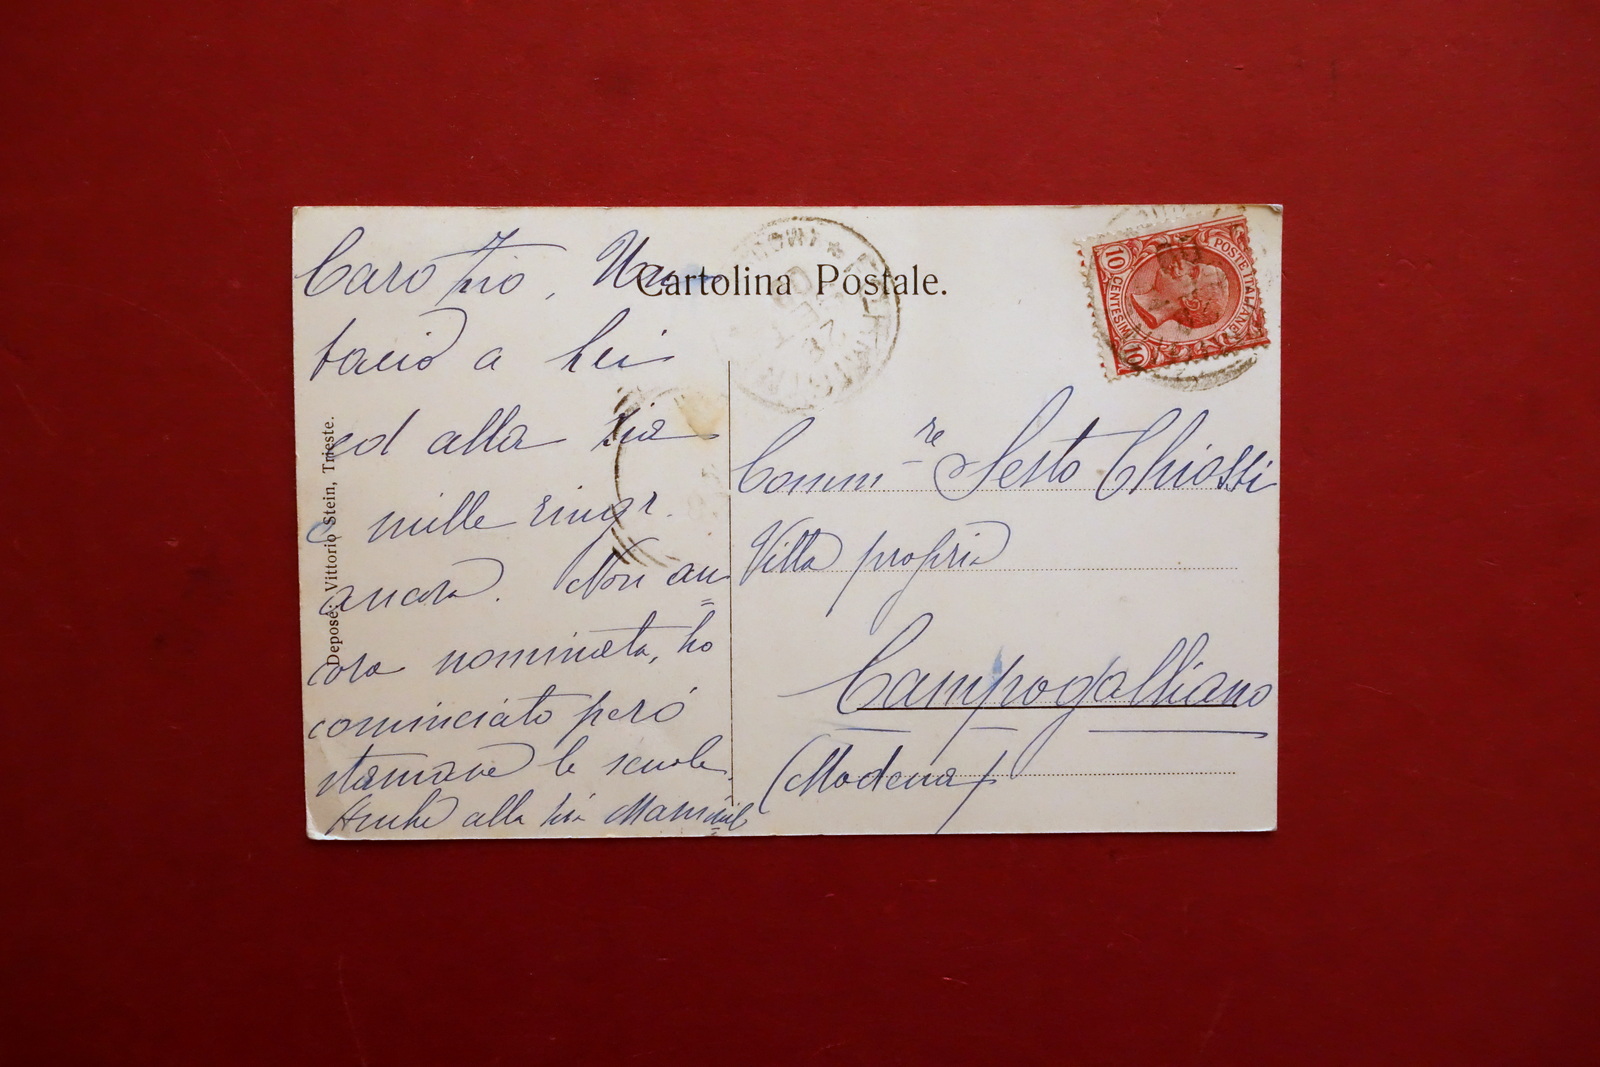 Cartolina Postale.
POSTE ITALIANE
CENTESIMI 10
10
Caro Zio, Un
bacio a Lei
ed alla zia
e mille ringr.
ancora. Non an=
cora nominata, ho
cominciato però
stamane le scuole.
Anche alla zia
Depose: Vittorio Stein, Trieste.
Comm.re Sesto Chiossi
Villa propria
Campogalliano
(Modena)